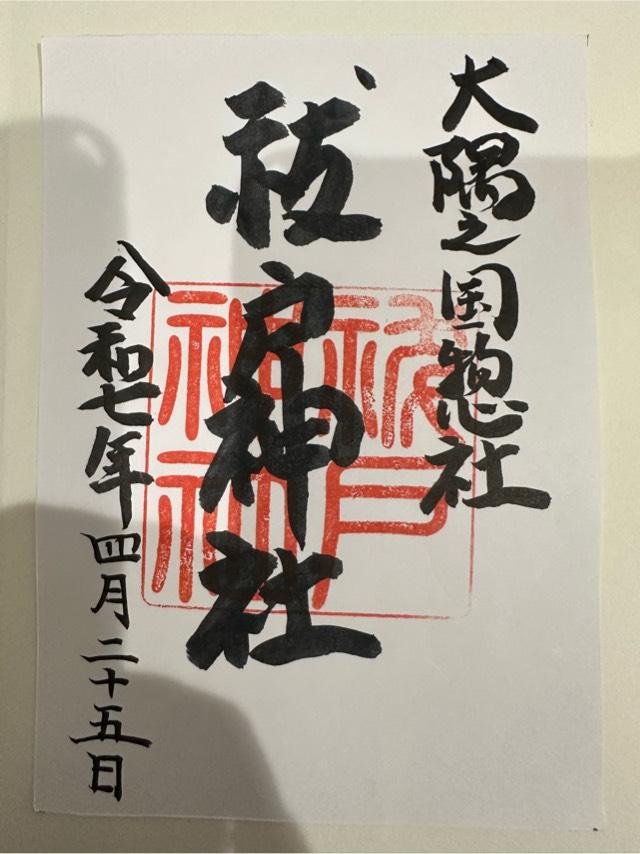 大隅之国惣社
祓戸神社
祓戸神社
令和七年四月二十五日